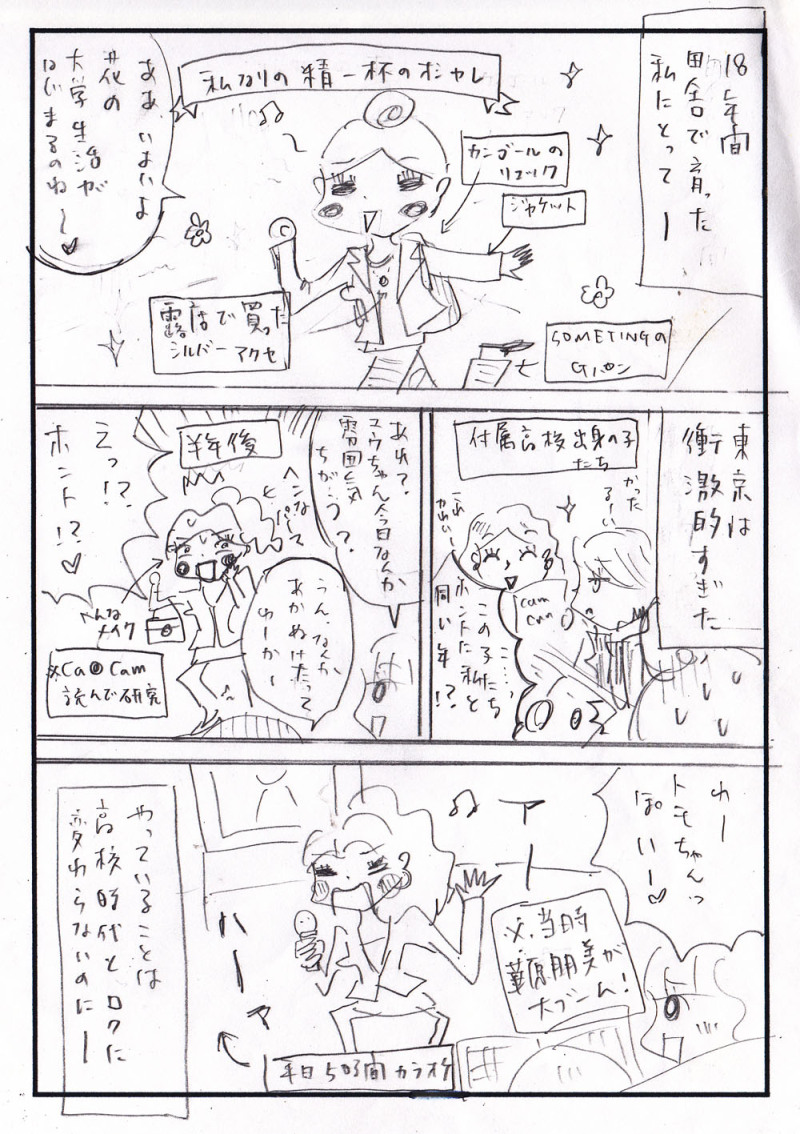 18年間
田舎で育った
私にとってー
私なりの精一杯のオシャレ
カンゴールの
リュック
ジャケット
SOMETINGの
Gパン
露店で買った
シルバーアクセ
ああ いよいよ
花の
大学生活が
はじまるのねー♥
東京は
衝激的すぎた
付属高校出身の子
たち
かった
るーい
これ
かわいー
cam
can
こ…っ
この子たち
ホントに私と
同い年!?
あれ?
ユウちゃん今日なんか
雰囲気
ちが…う?
半年後
ヘンな
パーマ
えっ!?
ホント!?♥
うん、なんか
あかぬけたって
ゆーかー
へんな
メイク
※Ca●Cam
読んで研究
わー
トモちゃんっ
ぽいー♥
アー
ハーァ
※当時
華原朋美が
大ブーム!
平日5時間カラオケ
やっていることは
高校時代とロクに
変わらないのにー